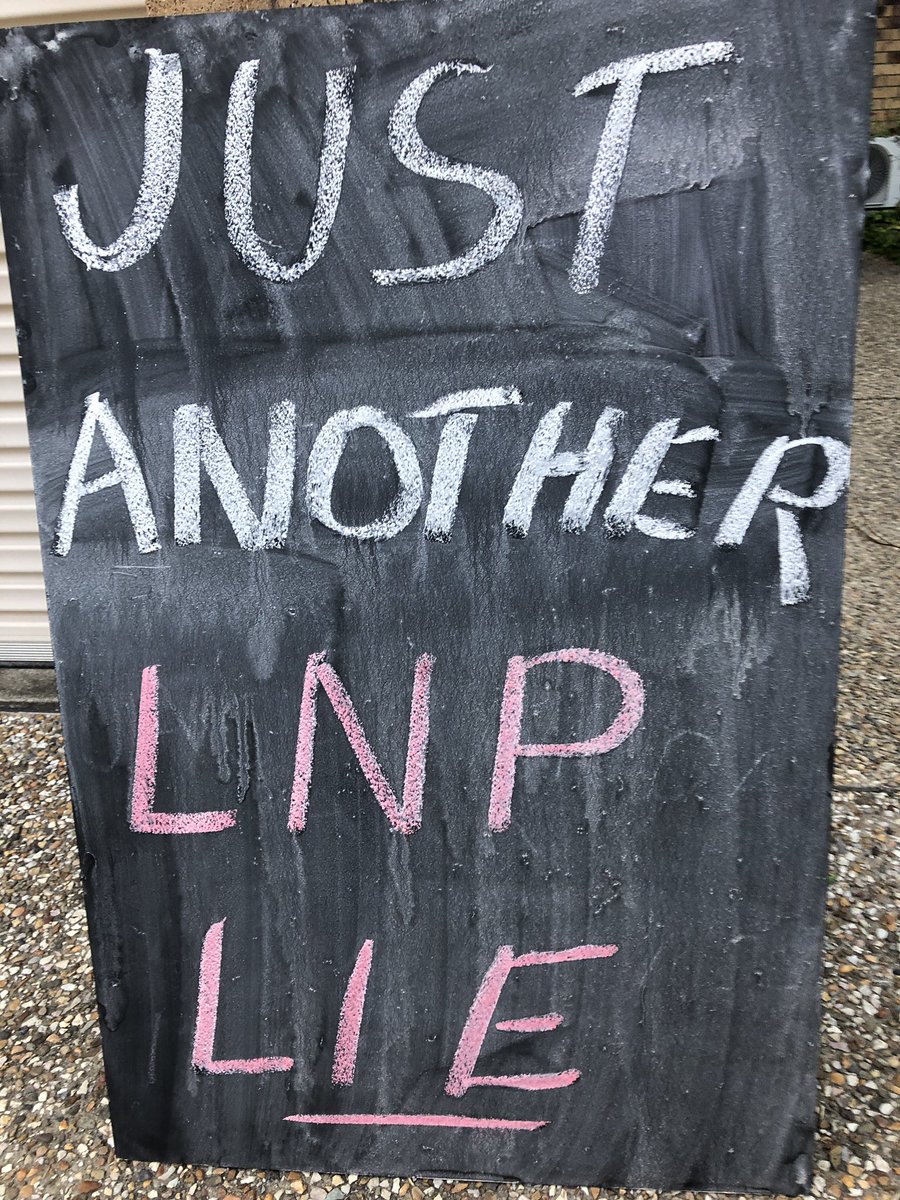 JUST
ANOTHER
LNP
LIE